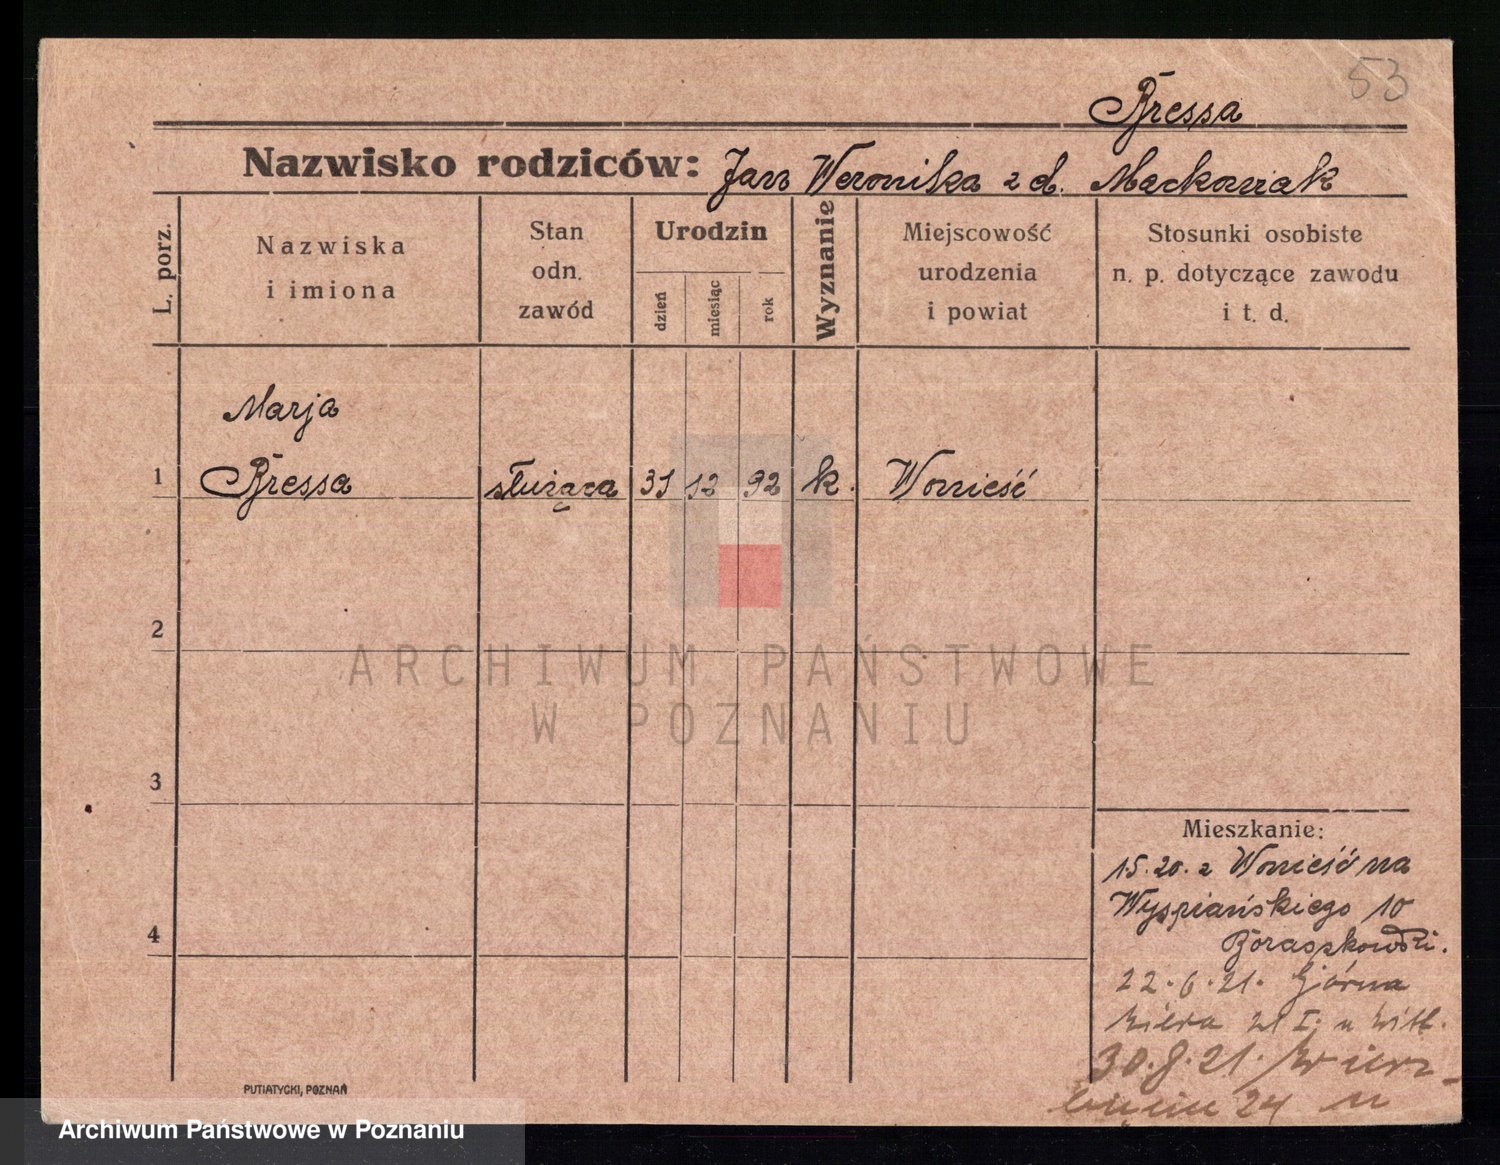 53
Bressa
Nazwisko rodziców: Jan Weronika z d. Maćkowiak
L. porz.
Nazwiska
i imiona
Stan
odn.
zawód
Urodzin
dzień
miesiąc
rok
Wyznanie
Miejscowość
urodzenia
i powiat
Stosunki osobiste
n. p. dotyczące zawodu
i t. d.
Marja
1 Bressa służąca 31 12 92 k. Wonieść
2
ARCHIWUM PAŃSTWOWE
W POZNANIU
3
Mieszkanie:
15.20. z Wonieść na
Wyspiańskiego 10
22.6.21. Górna
Wilda 21 I.
30.8.21.
24
4
PUTIATYCKI, POZNAŃ
Archiwum Państwowe w Poznaniu